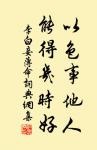 以色事他人
能得幾時好
李白妾薄命詞典網集